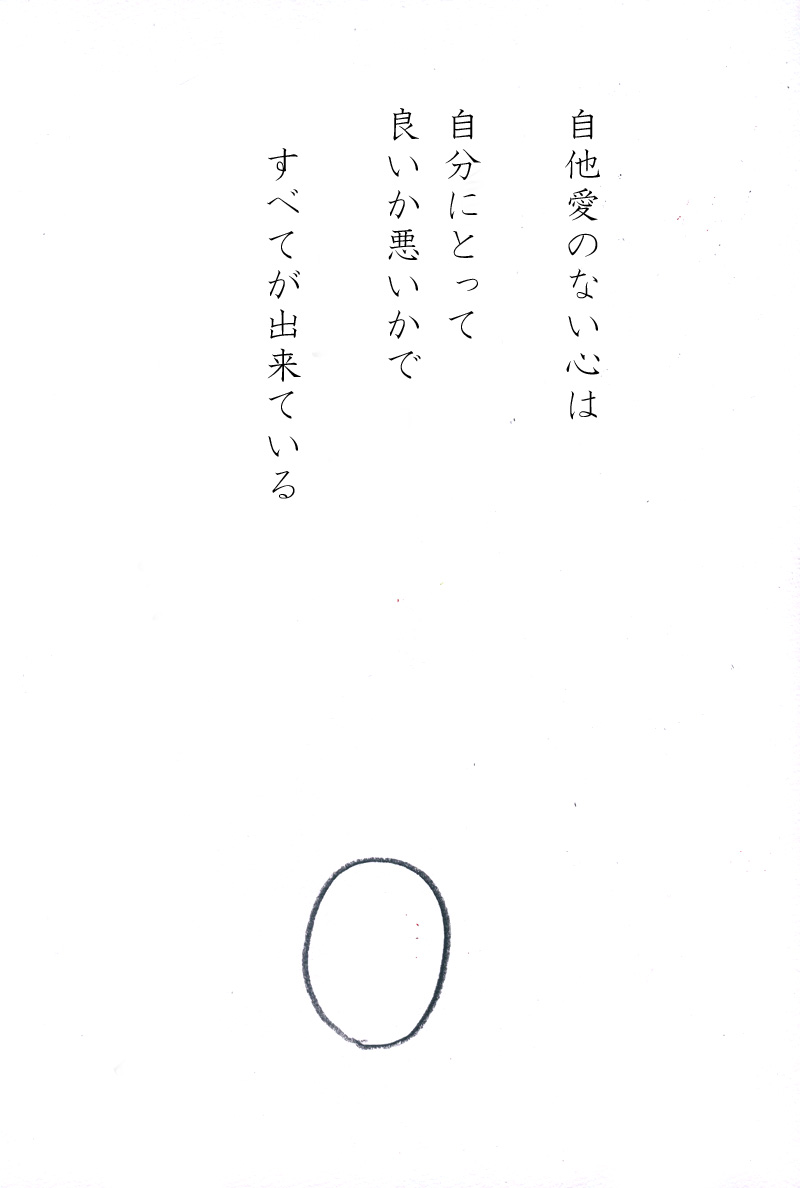 自他愛のない心は
自分にとって
良いか悪いかで
すべてが出来ている